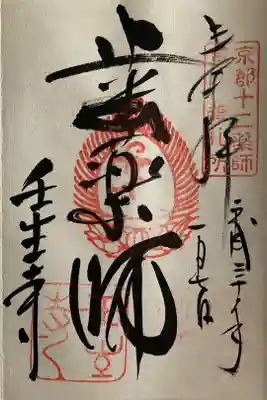 京都十二薬師
奉拝
平成三十年
一月七日
歯薬師
壬生寺